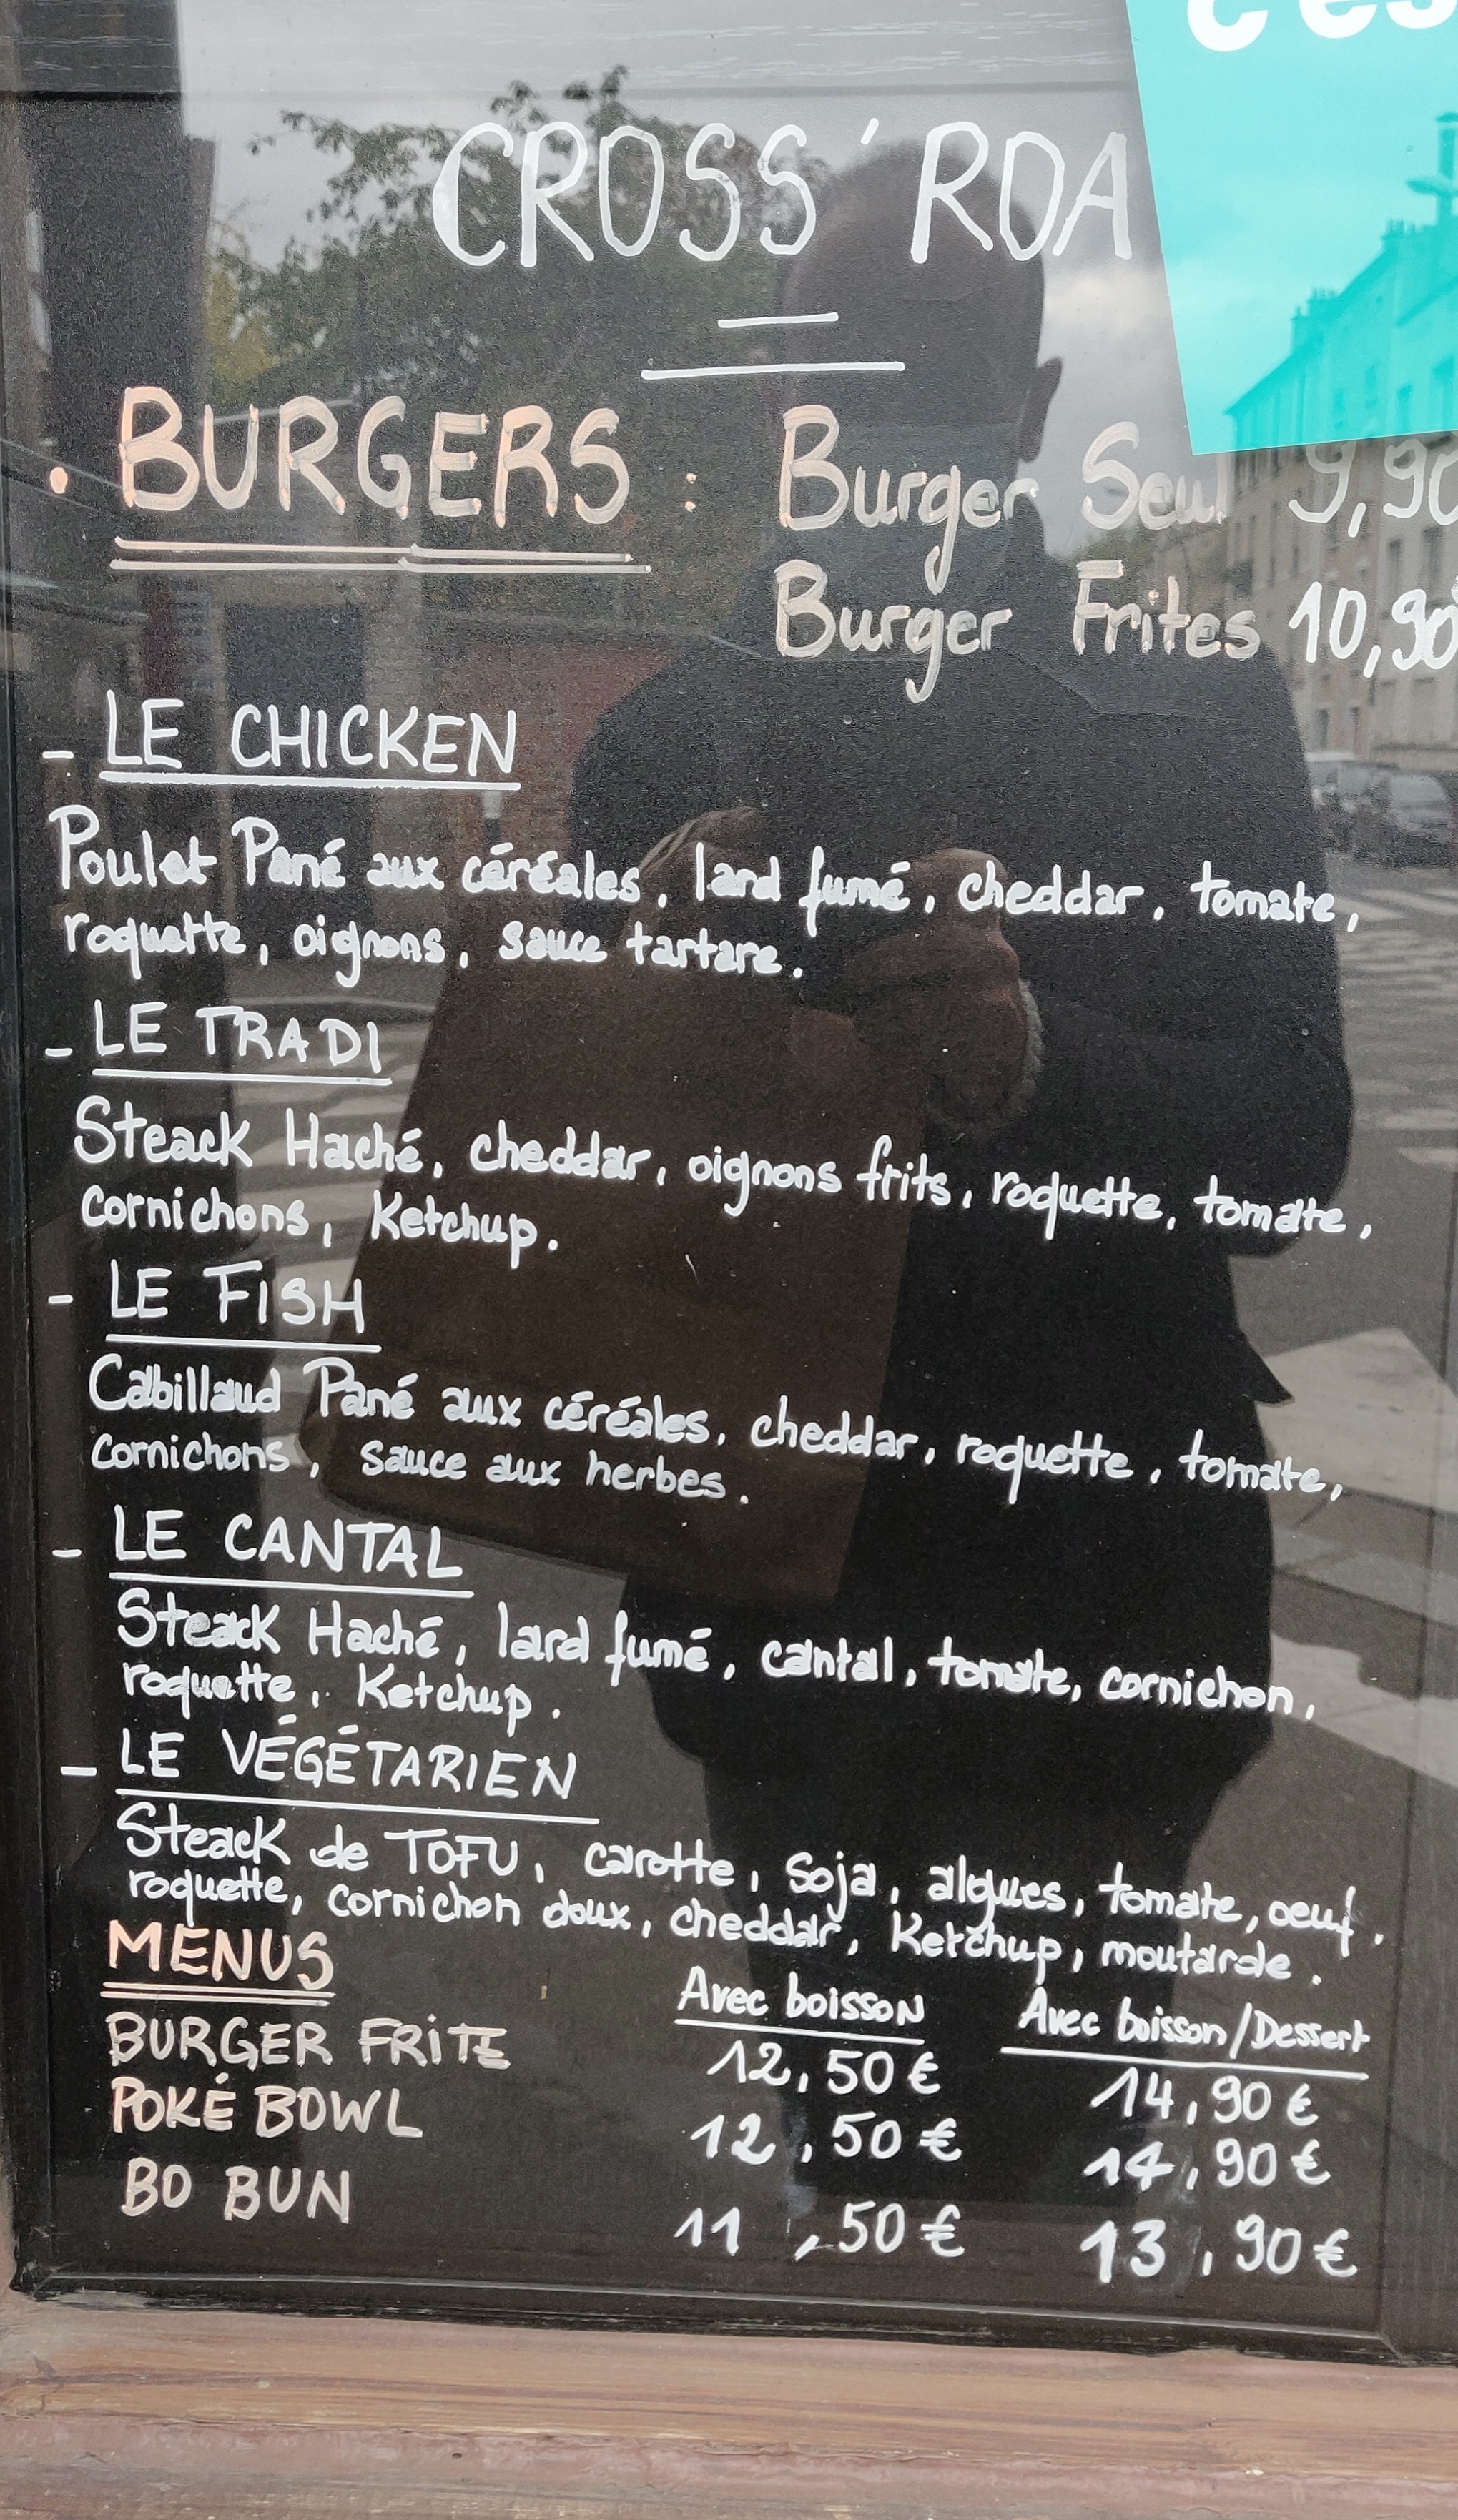 c'es
CROSS'ROA
• BURGERS : Burger Seul 9,90
Burger Frites 10,90
- LE CHICKEN
Poulet Pané aux céréales, lard fumé, cheddar, tomate,
roquette, oignons, sauce tartare.
- LE TRADI
Steack Haché, cheddar, oignons frits, roquette, tomate,
cornichons, Ketchup.
- LE FISH
Cabillaud Pané aux céréales, cheddar, roquette, tomate,
cornichons, sauce aux herbes.
- LE CANTAL
Steack Haché, lard fumé, cantal, tomate, cornichon,
roquette, Ketchup.
- LE VÉGÉTARIEN
Steack de TOFU, carotte, Soja, algues, tomate, oeuf.
roquette, cornichon doux, cheddar, Ketchup, moutarde.
MENUS Avec boisson Avec boisson/Dessert
BURGER FRITE 12,50€ 14,90€
POKÉ BOWL 12,50€ 14,90€
BO BUN 11,50€ 13,90€